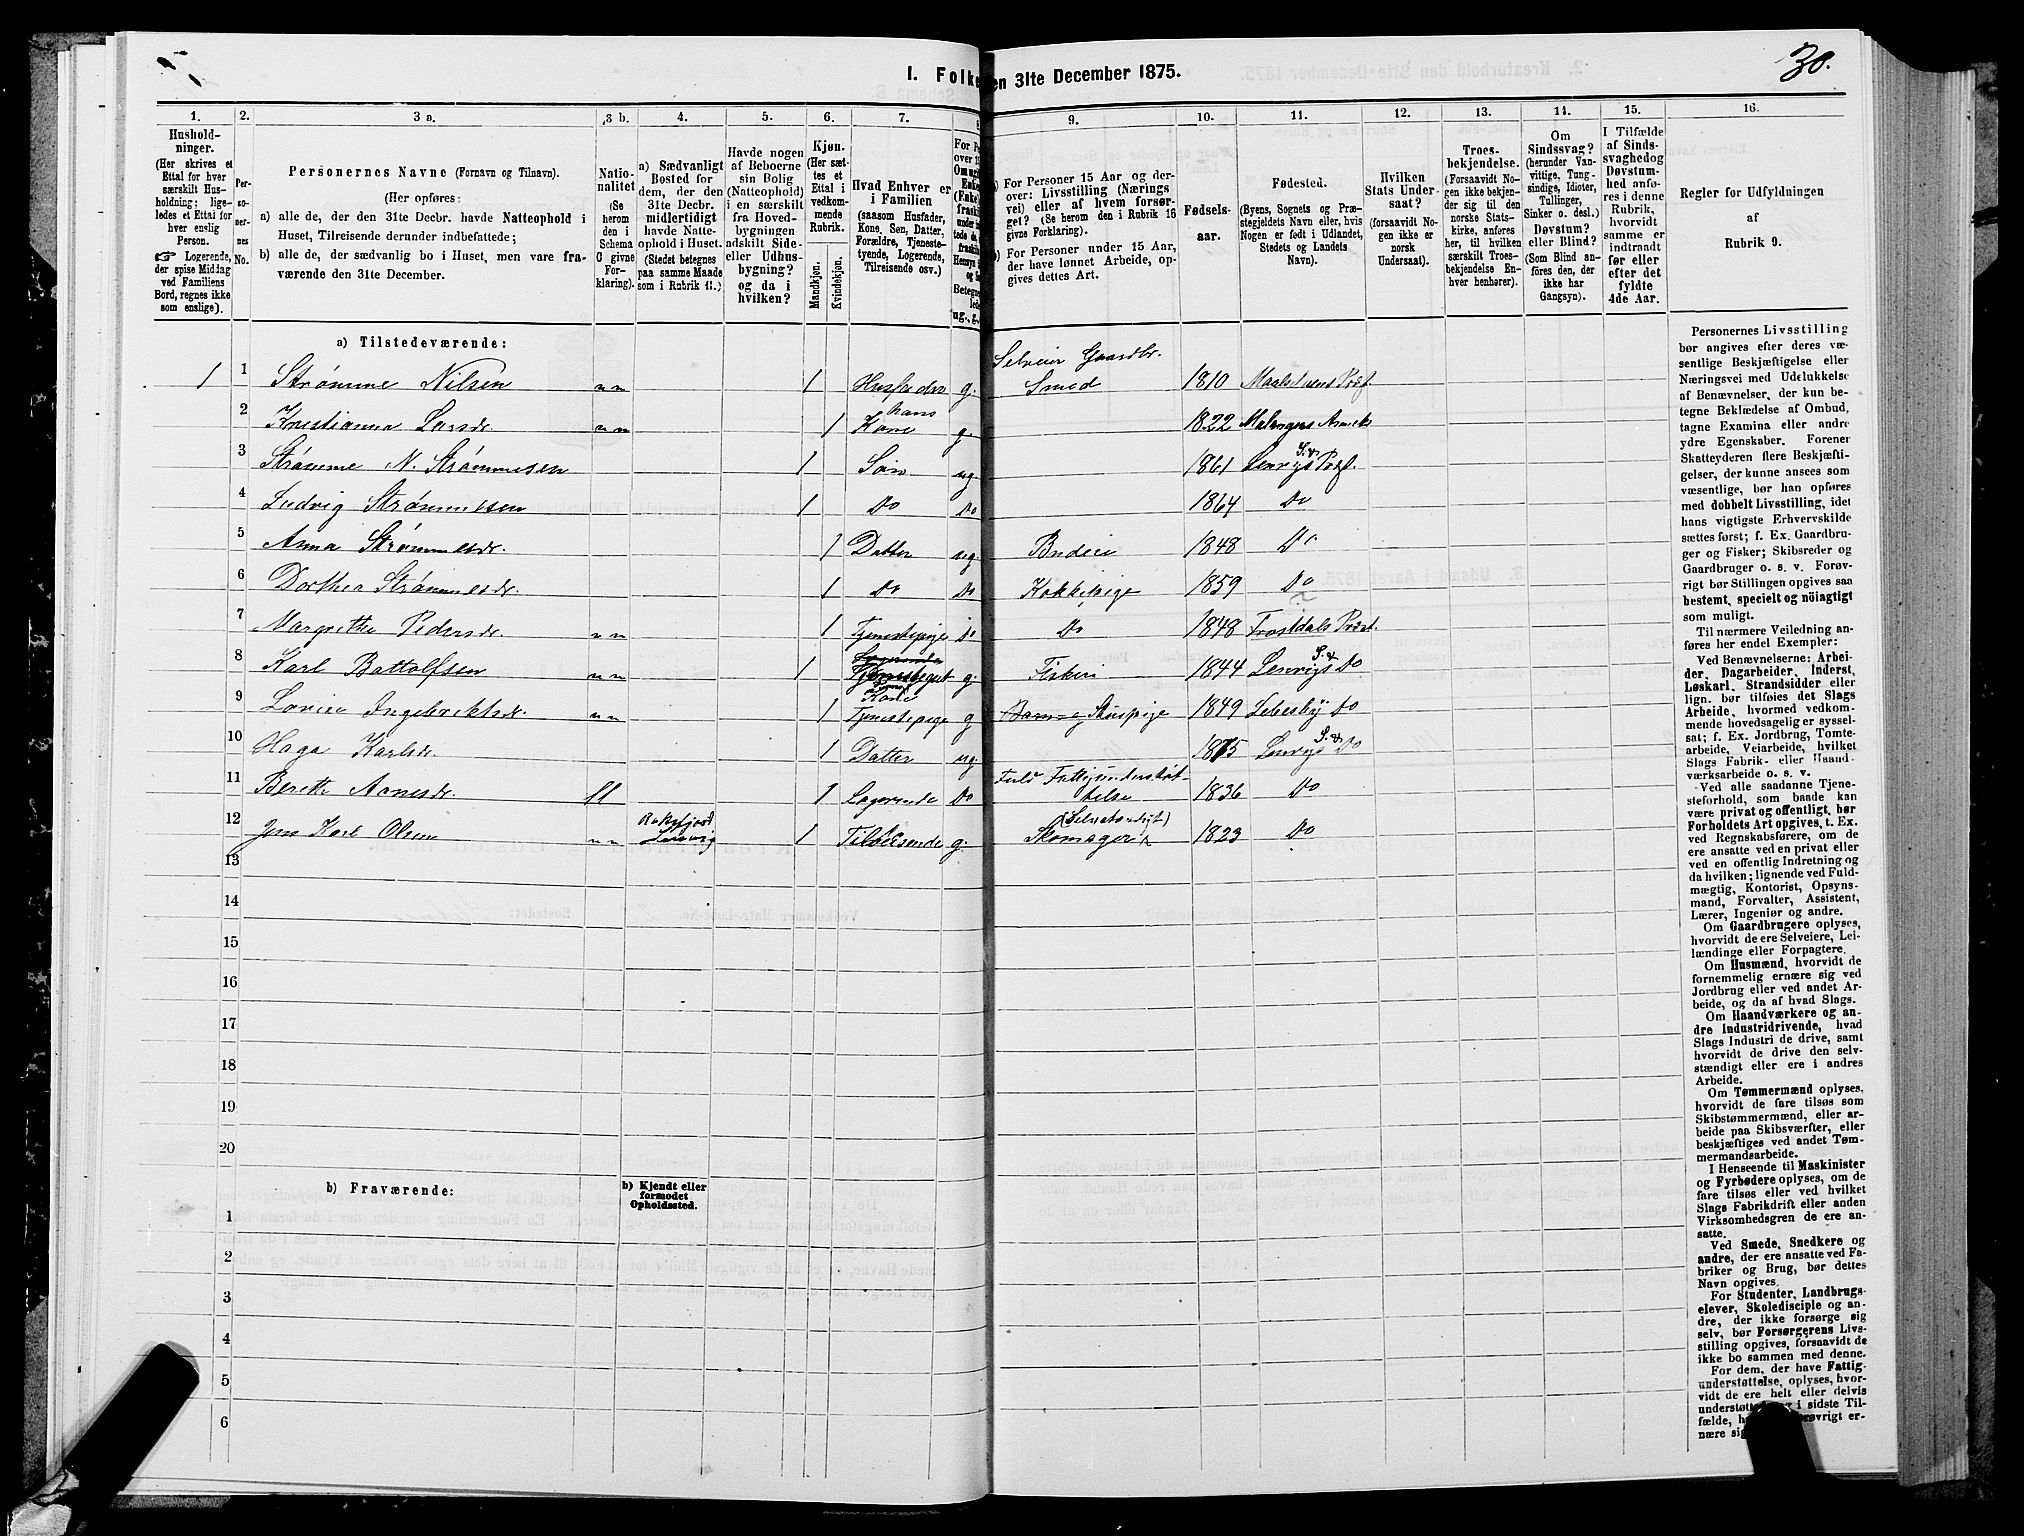 1. Folke en 31te December 1875.
30.
1. 2. 3 a. 3 b. 4. 5. 6. 7. 8 9. 10. 11. 12. 13. 14. 15. 16.
Hushold-
ninger.
(Her skrives et
Ettal for hver
særskilt Hus-
holdning; lige-
ledes et Ettal for
hver enslig
Person.
☞ Logerende,
der spise Middag
ved Familiens
Bord, regnes ikke
som enslige).
Per-
so-
ner-
nes
No.
Personernes Navne (Fornavn og Tilnavn).
(Her opføres:
a) alle de, der den 31te Decbr. havde Natteophold i
Huset, Tilreisende derunder indbefattede;
b) alle de, der sædvanlig bo i Huset, men vare fra-
værende den 31te December.
Natio-
nalitet
(Se
herom
den i
Schema
C givne
For-
klaring).
a) Sædvanligt
Bosted for
dem, der den
31te Decbr.
midlertidigt
havde Natte-
ophold i Huset.
(Stedet betegnes
paa samme Maade
som i Rubrik 11.)
Havde nogen
af Beboerne
sin Bolig
(Natteophold)
i en særskilt
fra Hoved-
bygningen
adskilt Side-
eller Udhus-
bygning?
og da i
hvilken?
Kjøn.
(Her sæt-
tes et
Ettal i
vedkom-
mende
Rubrik.
Mandkjøn.
Kvindekjøn.
Hvad Enhver er
i Familien
(saasom Husfader,
Kone, Søn, Datter,
Forældre, Tjeneste-
tyende, Logerende,
Tilreisende osv.)
ug., g.,
a) For Personer 15 Aar og der-
over: Livsstilling (Nærings
vei) eller af hvem forsør-
get? (Se herom den i Rubrik 16
givne Forklaring).
b) For Personer under 15 Aar,
der have lønnet Arbeide, op-
gives dettes Art.
Fødsels-
aar.
Fødested.
(Byens, Sognets og Præ-
stegjeldets Navn eller, hvis
Nogen er født i Udlandet,
Stedets og Landets
Navn).
Hvilken
Stats Under-
saat?
(forsaavidt No-
gen ikke er
norsk
Undersaat).
Troes-
bekjendelse.
(Forsaavidt No-
gen ikke bekjen-
der sig til den
norske Stats-
kirke, anføres
her, til hvilken
særskilt Troes-
bekjendelse En-
hver henhører).
Om
Sindssvag?
(herunder Van-
vittige, Tung-
sindige, Idioter,
Tullinger,
Sinker o. desl.)
Døvstum?
eller Blind?
(Som Blind an-
føres den, der
ikke har
Gangsyn).
I Tilfælde
af Sinds-
svaghedog
Døvstum-
hed anfø-
res i denne
Rubrik,
hvorvidt
samme er
indtraadt
før eller
efter det
fyldte
4de Aar.
Regler for Udfyldningen
af
Rubrik 9.
a) Tilstedeværende:
1 1 Strømme Nilsen " " 1 Husfader g. Selveier Gaardbr. Smed 1810 Præst.
2 Kristianna Larsdr. " " 1 hans Kone g. 1822 Malangens
3 Strømme N. Strømmesen 1 Søn ug 1861 Lenvigs S. & Præst.
4 Ludvig Strømmesen 1 Do Do 1864 Do
5 Anna Strømmesdr. 1 Datter ug. Budeie 1848 Do
6 Dorthea Strømmesdr. 1 Do Do Kokkepige 1859 Do
7 Margrethe Pedersdr. " " 1 Tjenestepige Do Do 1848 Præst.
8 Karl Battolfsen " " 1 Logerende Tjenestegut g. Fiskeri 1844 Lenvigs S. & Do
9 Lovise Ingebriktsdr. " " 1 Kone Tjenestepige g Barn og Stuepige 1849 Lebesby Do
10 Haga Karlsdr. 1 Datter ug. 1875 Lenvigs S. & Do
11 Berethe Arnesdr. 1 Logerende Do Fuld Fattigunderstøt-telse 1836 Do
12 Jens Karl Olsen " " Lenvig 1 Tilreisende g. Skomager (Selvstændigt) 1823 Do
13
14
15
16
17
18
19
20
b) Fraværende:
b) Kjendt eller
formodet
Opholdssted.
1
2
3
4
5
6
Personernes Livsstilling
bør angives efter deres væ-
sentlige Beskjæftigelse eller
Næringsvei med Udelukkelse
af Benævnelser, der kun be-
tegne Beklædelse af Ombud,
tagne Examina eller andre
ydre Egenskaber. Forener
Skatteyderen flere Beskjæfti-
gelser, der kunne ansees som
væsentlige, bør han opføres
med dobbelt Livsstilling, idet
hans vigtigste Erhvervskilde
sættes først; f. Ex. Gaardbru-
ger og Fisker; Skibsreder og
Gaardbruger o. s. v. Forøv-
rigt bør Stillingen opgives saa
bestemt, specielt og nöiagtigt
som muligt.
Til nærmere Veiledning an-
føres her endel Exempler:
Ved Benævnelserne: Arbei-
der, Dagarbeider, Inderst,
Løskarl, Strandsidder eller
lign. bør tilføies det Slags
Arbeide, hvormed vedkom-
mende hovedsagelig er syssel-
sat; f. Ex. Jordbrug, Tomte-
arbeide, Veiarbeide, hvilket
Slags Fabrik- eller Haand-
værksarbeide o. s. v.
Ved alle saadanne Tjene-
steforhold, som baade kan
være privat og offentligt, bør
Forholdets Art opgives, t. Ex.
ved Regnskabsførere, om de
ere ansatte ved en privat eller
ved en offentlig Indretning og
da hvilken; lignende ved Fuld-
mægtig, Kontorist, Opsyns-
mand, Forvalter, Assistent,
Lærer, Ingeniør og andre.
Om Gaardbrugere oplyses,
hvorvidt de ere Selveiere, Lei-
lændinge eller Forpagtere.
Om Husmænd, hvorvidt de
fornemmelig ernære sig ved
Jordbrug eller ved andet Ar-
beide, og da af hvad Slags.
Om Haandværkere og an-
dre Industridrivende, hvad
Slags Industri de drive, samt
hvorvidt de drive den selv-
stændigt eller ere i andres
Arbeide.
Om Tømmermænd oplyses,
hvorvidt de fare tilsøs som
Skibstømmermænd, eller ar-
beide paa Skibsværfter, eller
beskjæftiges ved andet Tøm-
mermandsarbeide.
I Henseende til Maskinister
og Fyrbødere oplyses, om de
fare tilsøs eller ved hvilket
Slags Fabrikdrift eller anden
Virksomhedsgren de ere an-
satte.
Ved Smede, Snedkere og
andre, der ere ansatte ved Fa-
briker og Brug, bør dettes
Navn opgives.
For Studenter, Landbrugs-
elever, Skoledisciple og an-
dre, der ikke forsørge sig
selv, bør Forsørgerens Livs-
stilling opgives, forsaavidt de
ikke bo sammen med denne.
For dem, der have Fattig-
understøttelse, oplyses, hvor-
vidt de ere helt eller delvis
understøttede og i sidste Til-
fælde, h forøvrigt er-
nære sig